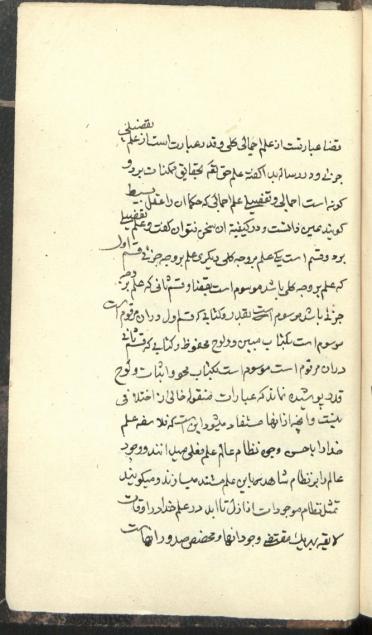 تفصیلی
قضا عبارتست از علم اجمالی کلی و قدر عبارت است از علم
جزئی و در رساله بدا گفته علم حق تعالی بحقایق ممکنات بر دو
گونه است اجمالی و تفصیلی علم اجمالی که حکما آن را عقل بسیط
گویند عین ذاتست و در کیفیة آن سخن نتوان گفت و علم تفصیلی
بر دو قسم است یکی علم بر وجه کلی دیگری علم بر وجه جزئی قسم اول
که علم بر وجه کلی باشد موسوم است بقضا و قسم ثانی که علم بر وجه
جزئی باشد موسوم است بقدر و کتابی که قسم اول در آن مرقوم است
موسوم است بکتاب مبین و لوح محفوظ و کتابی که قسم ثانی
در آن مرقوم است موسوم است بکتاب محو و اثبات و لوح
قدر پوشیده نماند که عبارات منقوله خالی از اختلافی
نیست و آنچه از آنها مستفاد میشود این است که فلاسفه علم
خدا را باحسن وجوه نظام عالم علم فعلی میدانند و وجود
عالم را بر نظام شاهد بر این علم میسازند و میگویند
تمثل نظام موجودات از ازل تا ابد در علم خدا در اوقات
لایقه بهر یک مقتضی وجود آنها و مخصص صدور آنهاست